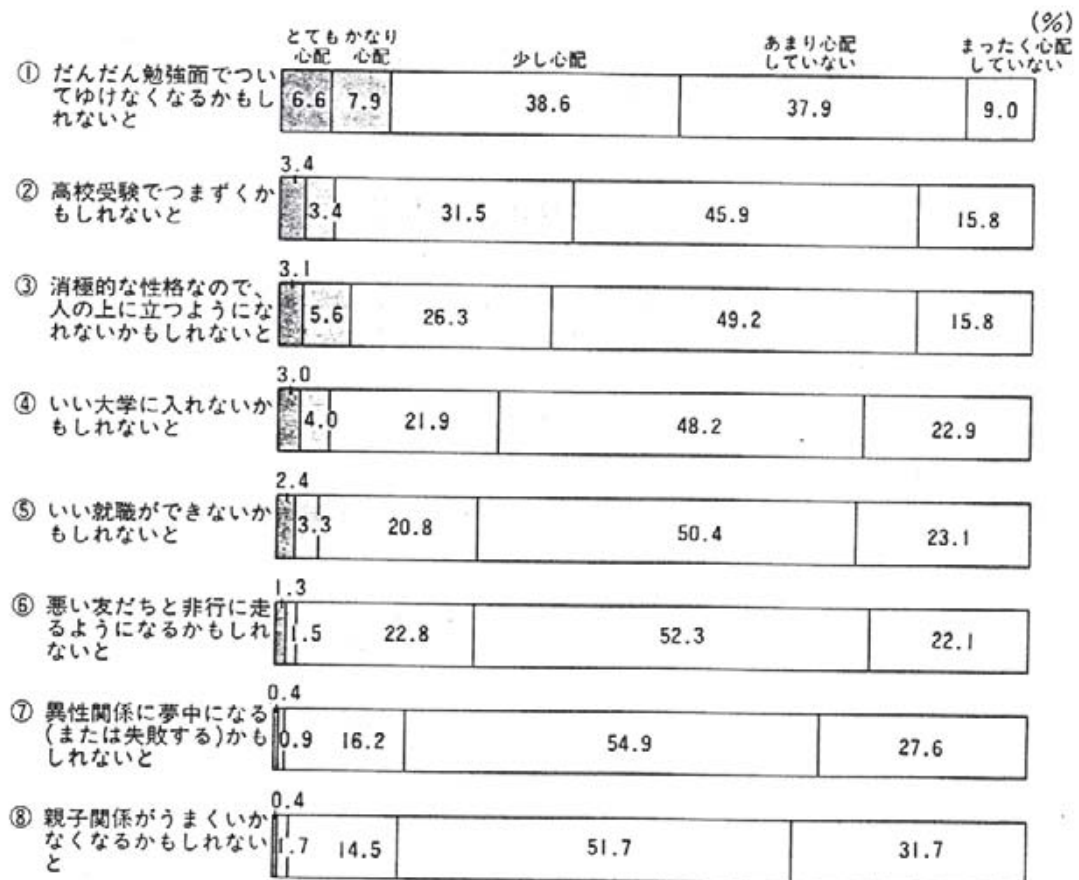 (%)
とても かなり
心配 心配
少し心配
あまり心配
していない
まったく心配
していない
① だんだん勉強面でつい
てゆけなくなるかもし
れないと
6.6 7.9 38.6 37.9 9.0
② 高校受験でつまずくか
もしれないと
3.4
3.4 31.5 45.9 15.8
③ 消極的な性格なので、
人の上に立つようにな
れないかもしれないと
3.1
5.6 26.3 49.2 15.8
④ いい大学に入れないか
もしれないと
3.0
4.0 21.9 48.2 22.9
⑤ いい就職ができないか
もしれないと
2.4
3.3 20.8 50.4 23.1
⑥ 悪い友だちと非行に走
るようになるかもしれ
ないと
1.3
1.5 22.8 52.3 22.1
⑦ 異性関係に夢中になる
(または失敗する)かも
しれないと
0.4
0.9 16.2 54.9 27.6
⑧ 親子関係がうまくいか
なくなるかもしれない
と
0.4
1.7 14.5 51.7 31.7